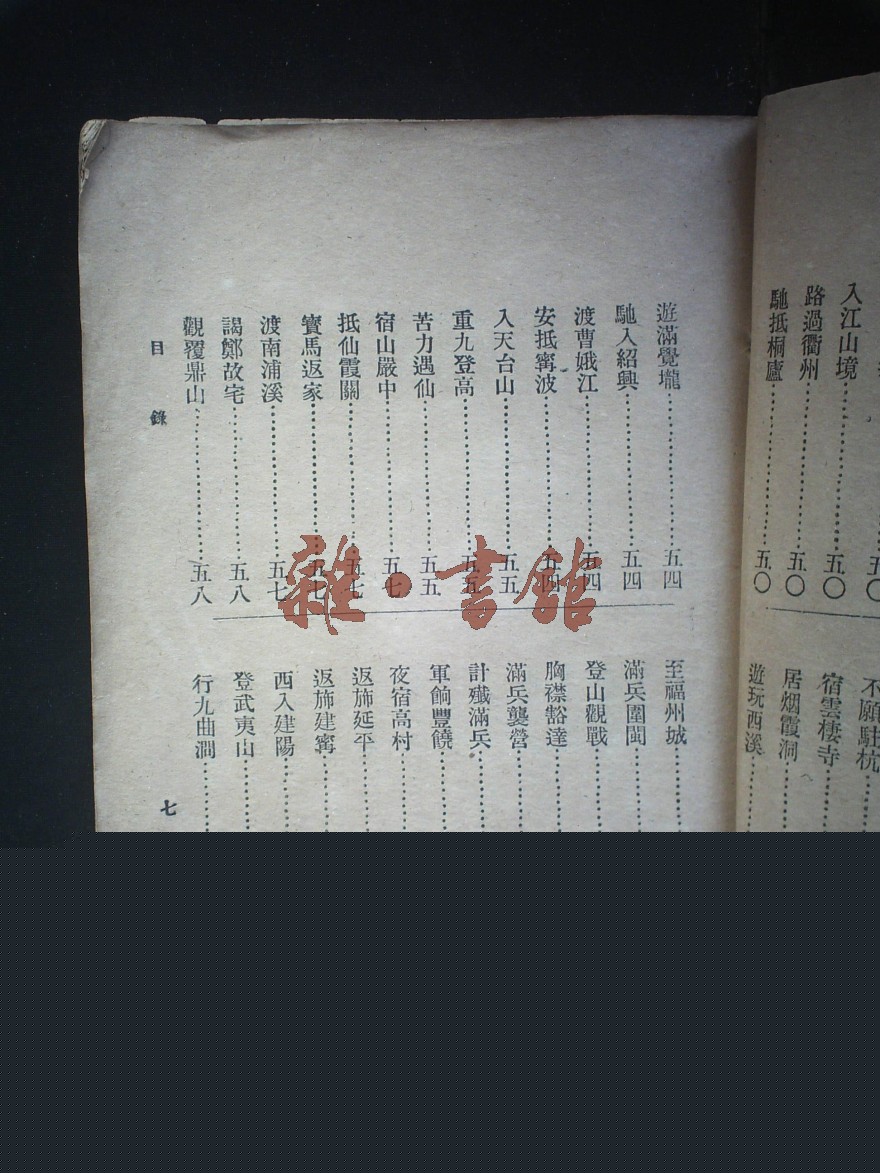 入江山境……五〇
路過衢州……五〇
馳抵桐廬……五〇
不願駐杭
宿雲棲寺
居烟霞洞
遊玩西溪
遊滿覺壠……五四
馳入紹興……五四
渡曹娥江……五四
安抵寗波……五四
入天台山……五五
重九登高……五五
苦力遇仙……五五
宿山嚴中……五七
抵仙霞關……五七
寳馬返家……五七
渡南浦溪……五七
謁鄭故宅……五八
觀覆鼎山……五八
至福州城
滿兵圍閩
登山觀戰
胸襟豁達
滿兵襲營
計殲滿兵
軍餉豐饒
夜宿高村
返斾延平
返斾建寗
西入建陽
登武夷山
行九曲澗
目錄
七
雜·書館